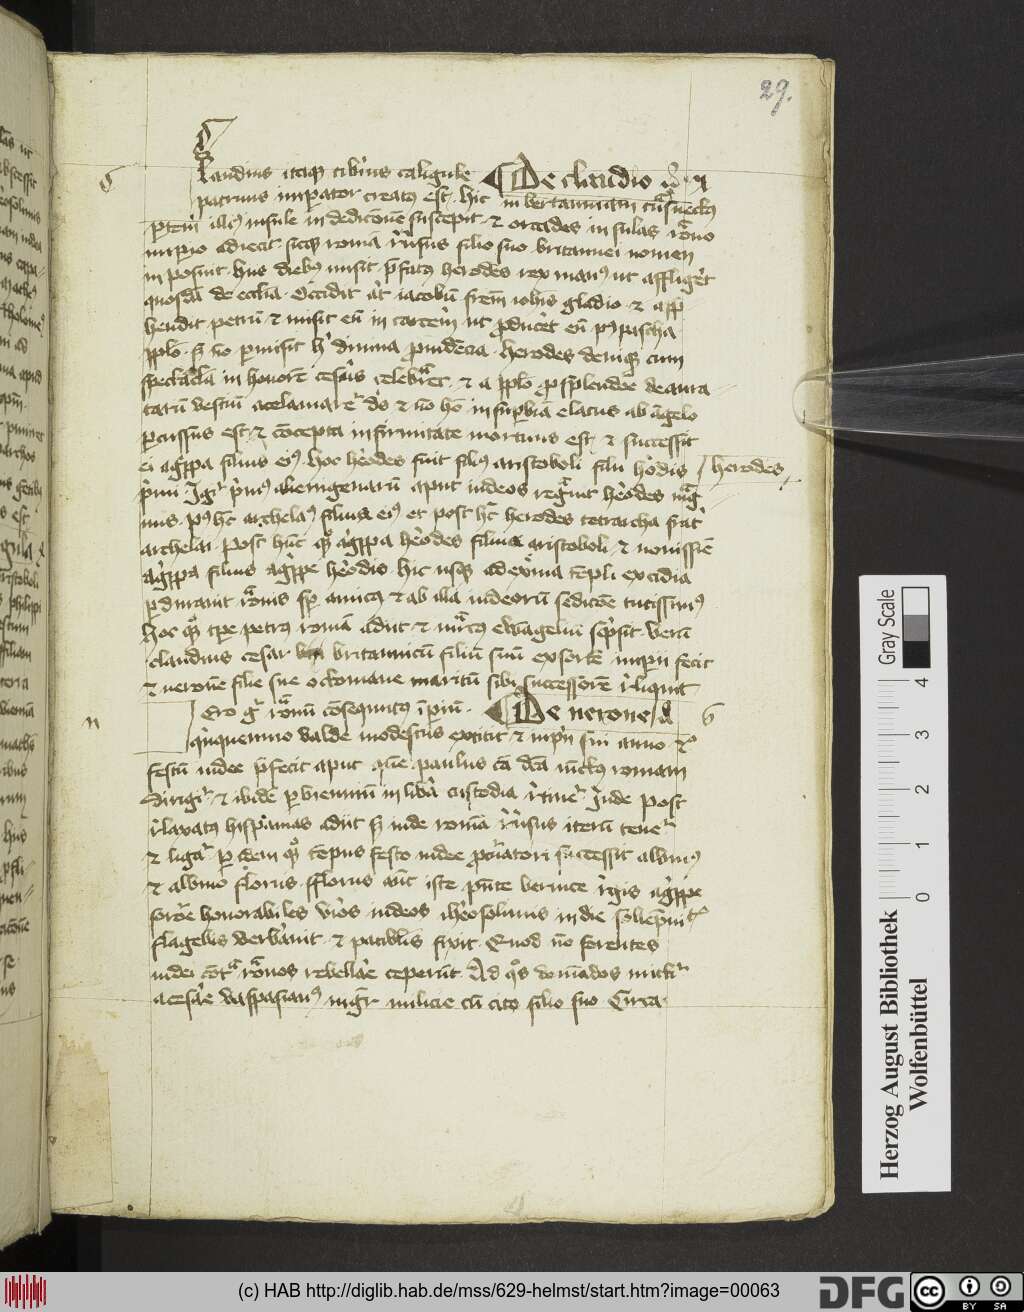 29.
Claudius itaque tiberius caligule De claudio
patruus imperator creatus est. hic in bertanniam transvectus
partem illius insule in dedicionem suscepit et orcades insulas romano
imperio adiecit sicque romam reversus filio suo britannici nomen
inposuit. hiis diebus misit prefatus herodes rex manus ut affligeret
quosdam de ecclesia. Occidit autem iacobum fratrem iohannis gladio. et appre
hendit petrum et misit eum in carcerem ut produceret eum post pascha
populo. sed non permisit hoc divina providencia. herodes denique cum
spectacula in honorem cesaris celebraret. et a populo pro splendore deaura
tarum vestium acclamaretur deus et non homo in superbiam elatus ab angelo
percussus est. et concepta infirmitate mortuus est. et successit
ei agrippa filius eius. hoc herodes fuit filius aristoboli filii herodis / herodes
primi Igitur primus alienigenarum aput iudeos regnavit herodes mag
nus. post hunc archelaus filius eius et post hunc herodes tetrarcha frater
archelai. post hunc quoque agrippa herodes filius aristoboli. et novissime
agrippa filius agrippe herodis. hic usque ad extrema templi excidia
perduravit romanis semper amicus et ab illa iudeorum sedicione tutissimus
hoc quoque tempore petrus romam adiit et marcus ewangelium scripsit. verum
claudius cesar britannicum filium suum exsortem imperii fecit
et neronem filie sue octoviane maritum sibi successorem reliquit
Nero igitur romanum consequitur imperium. De nerone 6
quinquennio valde modestus extitit et imperii sui anno
festum iudee prefecit aput quem paulus causam dicam vinctus romam
dirigitur. et ibidem per biennium in libera custodia retinetur. Inde post
relaxatus hispanias adiit sed inde romam reversus iterum tenetur
et ligatur per idem quoque tempus festo iudee procuratori successit albinus
et albino florus. fflorus autem iste presente bernice regis agrippe
sorore honorabiles viros iudeos iherosolimis in die
flagellis verberavit. et patibulis fixit. Quod non ferentes
iudei contra romanos rebellare ceperunt. Ad quos domandos mittitur
a cesare vaspasianus magister milicie cum tito filio suo Circa
Gray Scale
0 1 2 3 4
Herzog August Bibliothek
Wolfenbüttel
(c) HAB http://diglib.hab.de/mss/629-helmst/start.htm?image=00063
DFG
cc BY SA